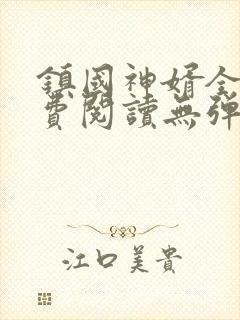 鎮國神婿全
費閱讀無彈
江口美貴